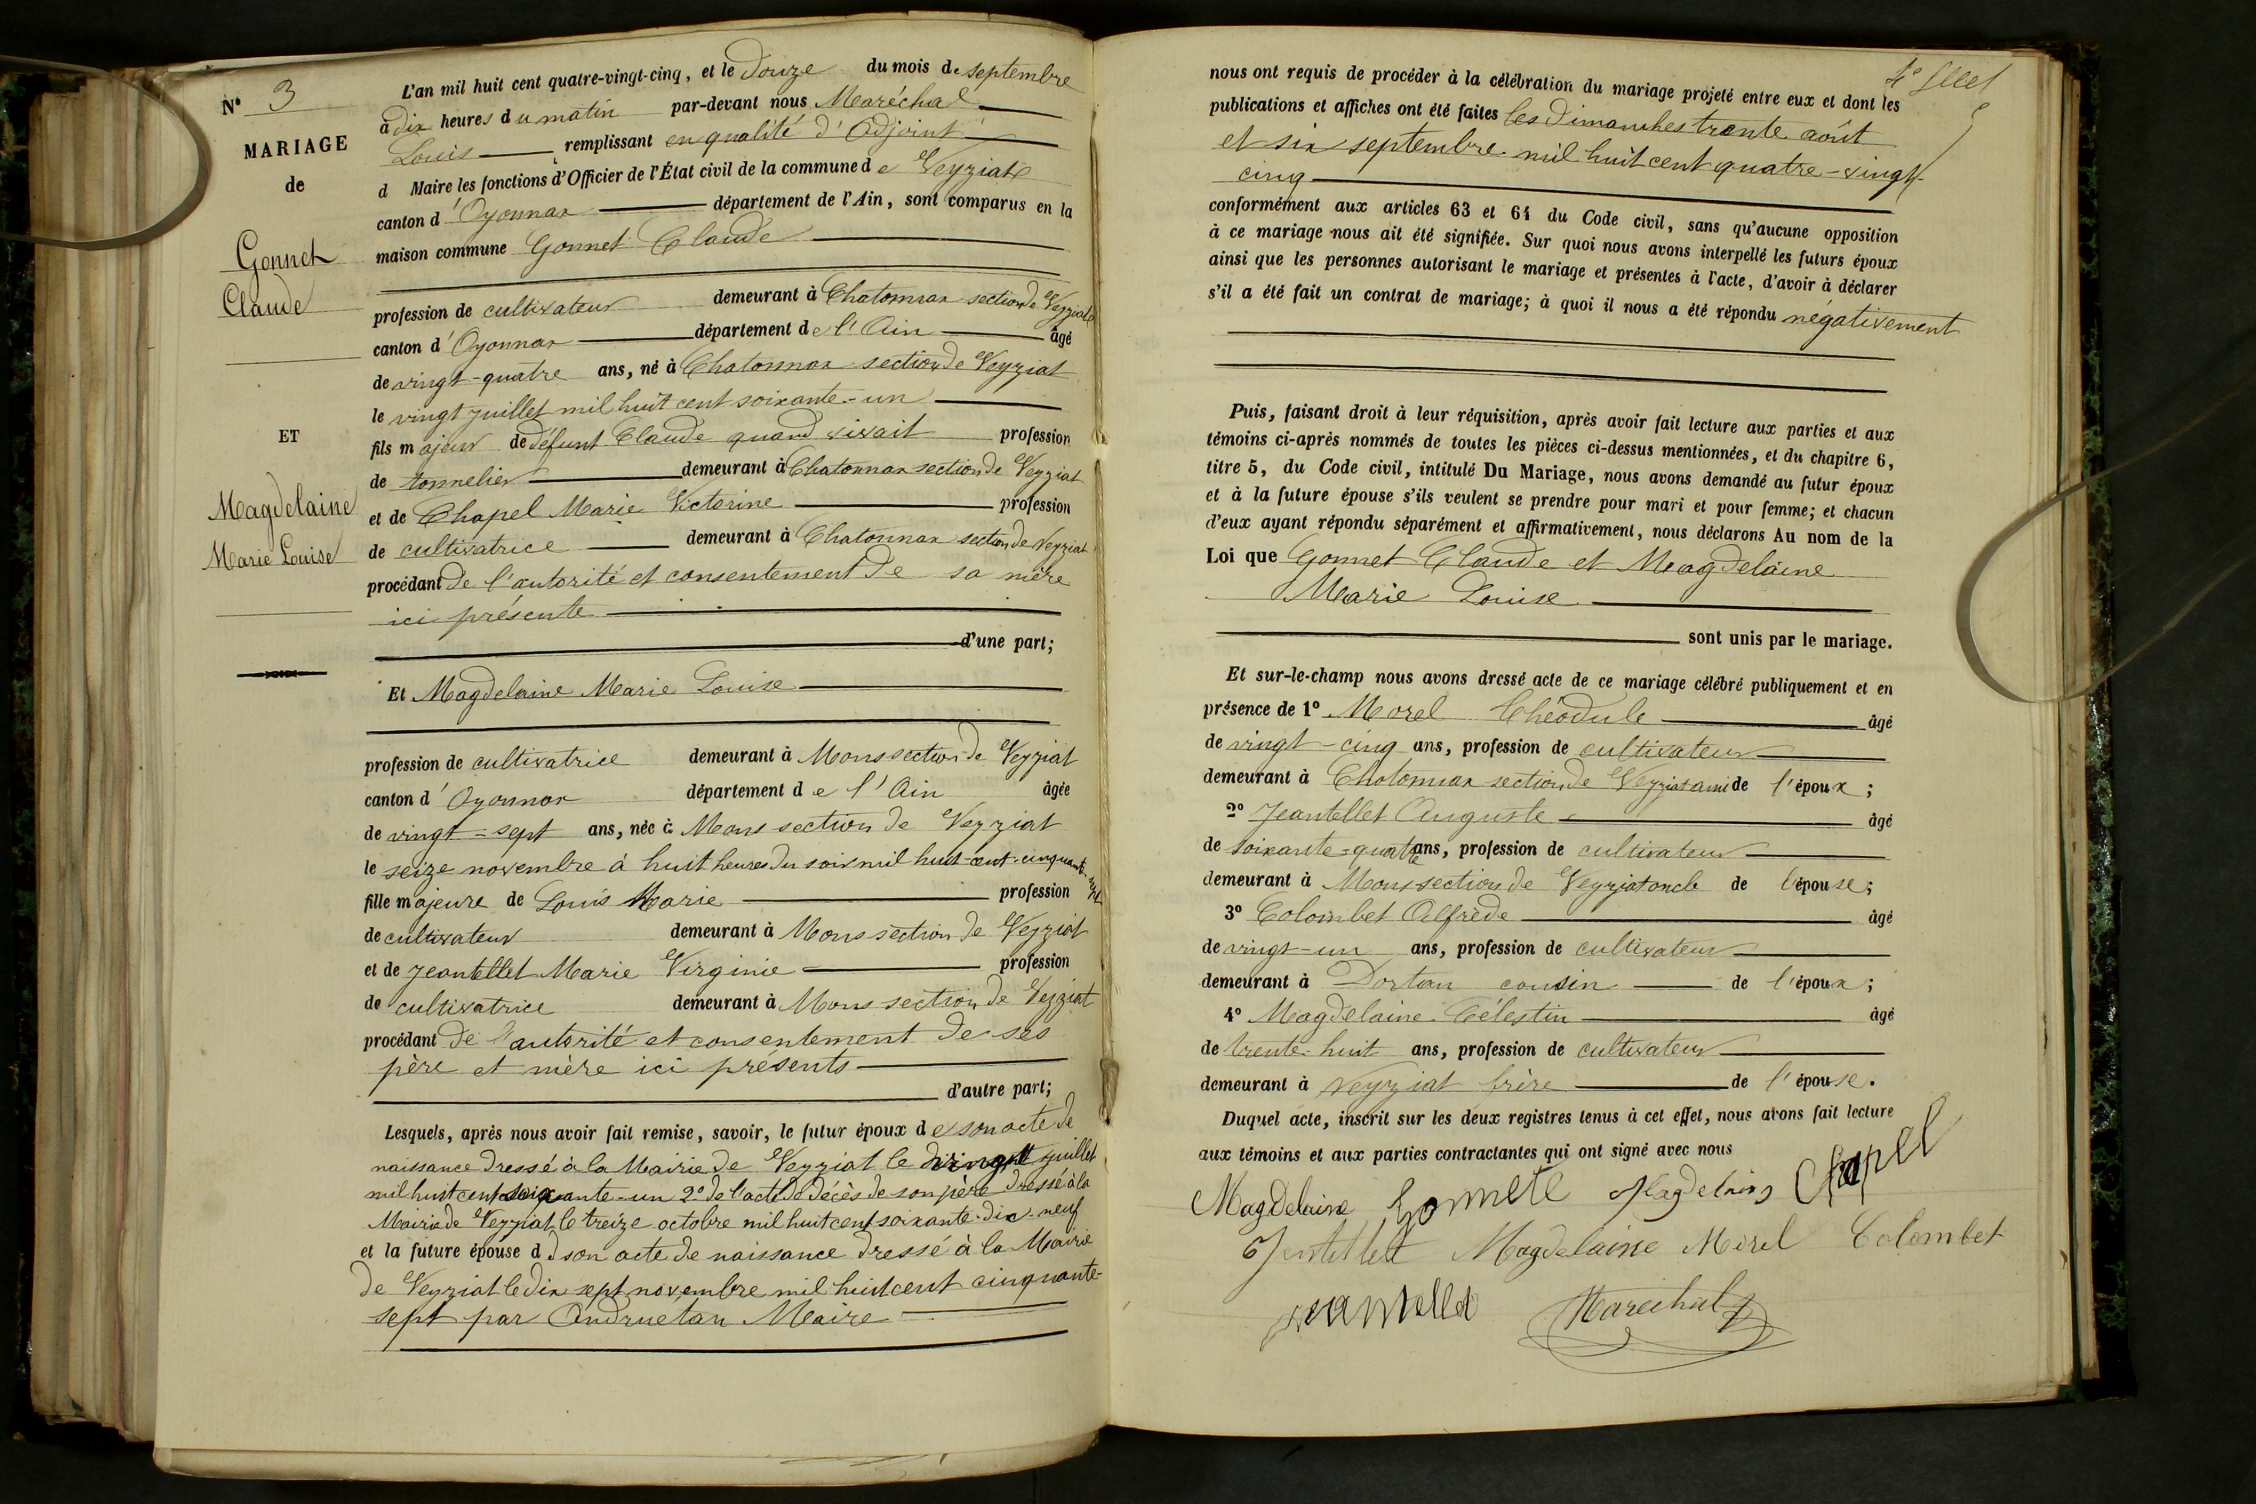 N° 3
MARIAGE
de
Gonnet
Claude
ET
Magdelaine
Marie Louise
L'an mil huit cent quatre-vingt-cinq, et le douze du mois de septembre
à dix heures du matin par-devant nous Maréchal
Louis remplissant en qualité d'Adjoint
d Maire les fonctions d'Officier de l'État civil de la commune de Veyziat
canton d'Oyonnax département de l'Ain, sont comparus en la
maison commune Gonnet Claude
profession de cultivateur demeurant à Chatonnax section de Veyziat
canton d'Oyonnax département de l'Ain âgé
de vingt-quatre ans, né à Chatonnax section de Veyziat
le vingt juillet mil huit cent soixante-un
fils majeur de défunt Claude quand vivait profession
de tonnelier demeurant à Chatonnax section de Veyziat
et de Chapel Marie Victorine profession
de cultivatrice demeurant à Chatonnax section de Veyziat
procédant de l'autorité et consentement de sa mère
ici présente
d'une part;
Et Magdelaine Marie Louise
profession de cultivatrice demeurant à Mons section de Veyziat
canton d'Oyonnax département de l'Ain âgée
de vingt-sept ans, née à Mons section de Veyziat
le seize novembre à huit heures du soir mil huit-cent-cinquante-sept
fille majeure de Louis Marie profession
de cultivateur demeurant à Mons section de Veyziat
et de Jeantellet Marie Virginie profession
de cultivatrice demeurant à Mons section de Veyziat
procédant de l'autorité et consentement de ses
père et mère ici présents
d'autre part;
Lesquels, après nous avoir fait remise, savoir, le futur époux de son acte de
naissance dressé à la Mairie de Veyziat le vingt juillet
mil huit cent soixante-un 2° de l'acte de décès de son père dressé à la
Mairie de Veyziat le treize octobre mil huit cent soixante-dix-neuf
et la future épouse d son acte de naissance dressé à la Mairie
de Veyziat le dix sept novembre mil huit cent cinquante-
sept par Andruetan Maire
4e
nous ont requis de procéder à la célébration du mariage projeté entre eux et dont les
publications et affiches ont été faites les dimanches trente août
et six septembre mil huit cent quatre-vingt-
cinq
conformément aux articles 63 et 64 du Code civil, sans qu'aucune opposition
à ce mariage nous ait été signifiée. Sur quoi nous avons interpellé les futurs époux
ainsi que les personnes autorisant le mariage et présentes à l'acte, d'avoir à déclarer
s'il a été fait un contrat de mariage; à quoi il nous a été répondu négativement
Puis, faisant droit à leur réquisition, après avoir fait lecture aux parties et aux
témoins ci-après nommés de toutes les pièces ci-dessus mentionnées, et du chapitre 6,
titre 5, du Code civil, intitulé Du Mariage, nous avons demandé au futur époux
et à la future épouse s'ils veulent se prendre pour mari et pour femme; et chacun
d'eux ayant répondu séparément et affirmativement, nous déclarons Au nom de la
Loi que Gonnet Claude et Magdelaine
Marie Louise
sont unis par le mariage.
Et sur-le-champ nous avons dressé acte de ce mariage célébré publiquement et en
présence de 1° Morel Théodule âgé
de vingt-cinq ans, profession de cultivateur
demeurant à Chatonnax section de Veyziat ami de l'époux;
2° Jeantellet Auguste âgé
de soixante-quatre ans, profession de cultivateur
demeurant à Mons section de Veyziat oncle de l'épouse;
3° Colombet Alfrède âgé
de vingt-un ans, profession de cultivateur
demeurant à Dortan cousin de l'époux;
4° Magdelaine Célestin âgé
de trente-huit ans, profession de cultivateur
demeurant à Veyziat frère de l'épouse.
Duquel acte, inscrit sur les deux registres tenus à cet effet, nous avons fait lecture
aux témoins et aux parties contractantes qui ont signé avec nous
Magdelaine Gonnete Magdelaine Chapel
Jentellet Magdelaine Morel Colombet
Jeantellet Maréchal